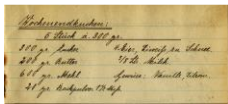 Wochenendkuchen:
6 Stück à 800 gr.
300 gr. Zucker 4 Eier, Eiweiß zu Schnee
200 gr. Butter 1/8 Lt. Milch
600 gr. Mehl Gewürz: Vanille, Zitron
20 gr. Backpulver